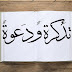 تذكرة ودعوة